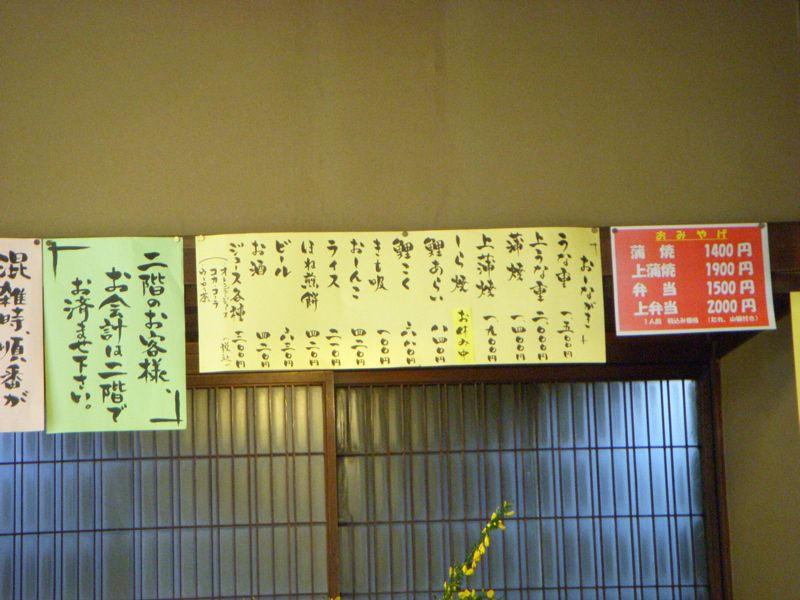 混雑時、順番が
二階のお客様、
お会計は二階で
お済ませ下さい。
おしながき
うな重 一五〇〇円
上うな重 二〇〇〇円
蒲焼 一四〇〇円
上蒲焼 一九〇〇円
しら焼 お休み中
鯉あらい 八四〇円
鯉こく 六八〇円
きも吸 一〇〇円
おしんこ 二一〇円
ライス 二一〇円
ほね煎餅 四二〇円
ビール 六三〇円
お酒 四二〇円
ジュース各種 三〇〇円
オレンジジュース
コカ・コーラ
ウーロン茶
(税込)
おみやげ
蒲焼 1400円
上蒲焼 1900円
弁当 1500円
上弁当 2000円
1人前 税込み価格 (たれ、山椒付き)